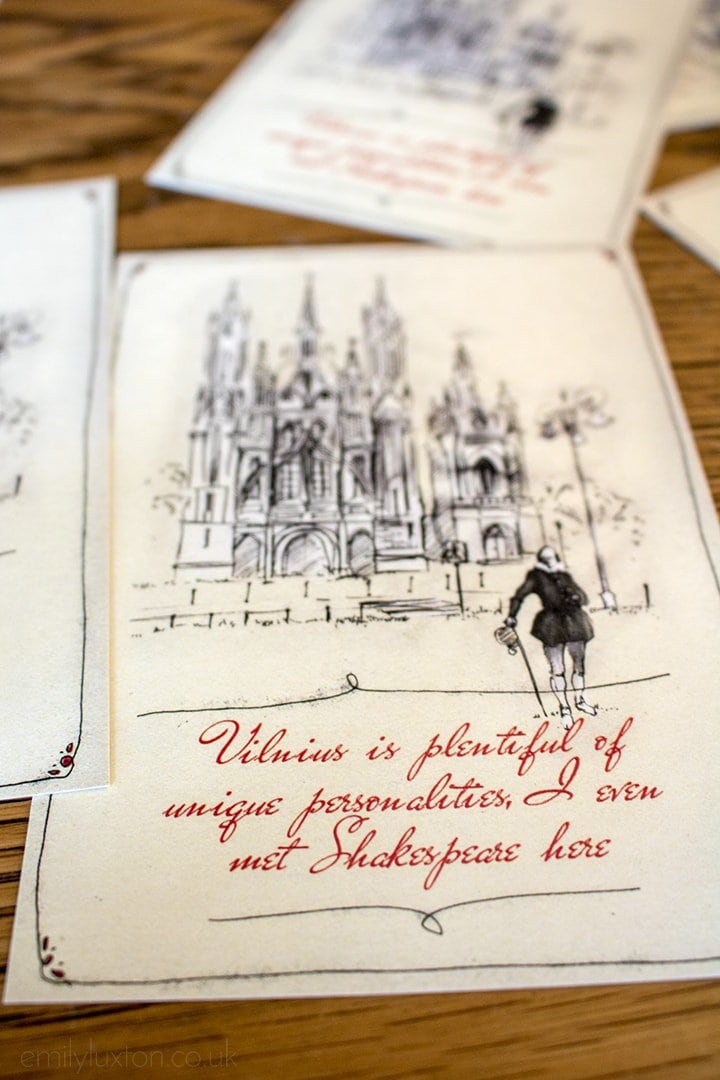 Vilnius is plentiful of
unique personalities, I even
met Shakespeare here
emilyluxton.co.uk